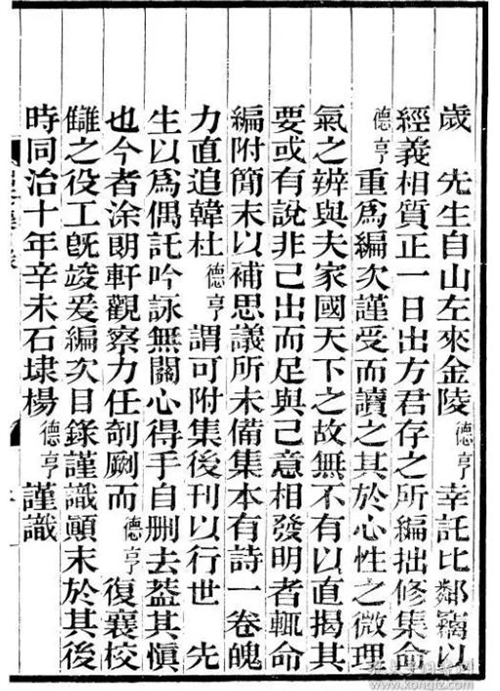 歲　先生自山左來金陵德亨幸託比鄰竊以
經義相質正一日出方君存之所編拙修集命
德亨重爲編次謹受而讀之其於心性之微理
氣之辨與夫家國天下之故無不有以直揭其
要或有說非己出而足與己意相發明者輒命
編附簡末以補思議所未備集本有詩一卷魄
力直追韓杜德亨謂可附集後刊以行世　先
生以爲偶託吟詠無關心得手自删去蓋其愼
也今者涂朗軒觀察力任剞劂而德亨復襄校
讎之役工旣竣爰編次目錄謹識顚末於其後
時同治十年辛未石埭楊德亨謹識
www.kongfz.com